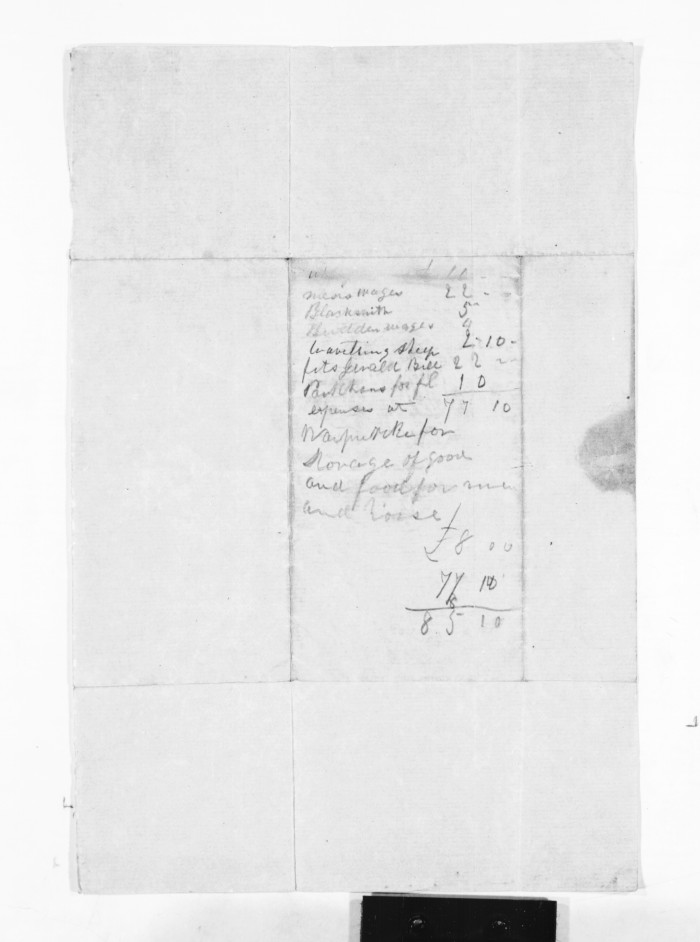 " 11
mens wages 22 -
Blacksmith 5 -
wages 4
travelling sheep 2 - 10 -
fitsGerald Bill 22 - -
for 10
expenses at 77 10
for
storage of good
and food for men
and horse
£8 00
77 10
85 10